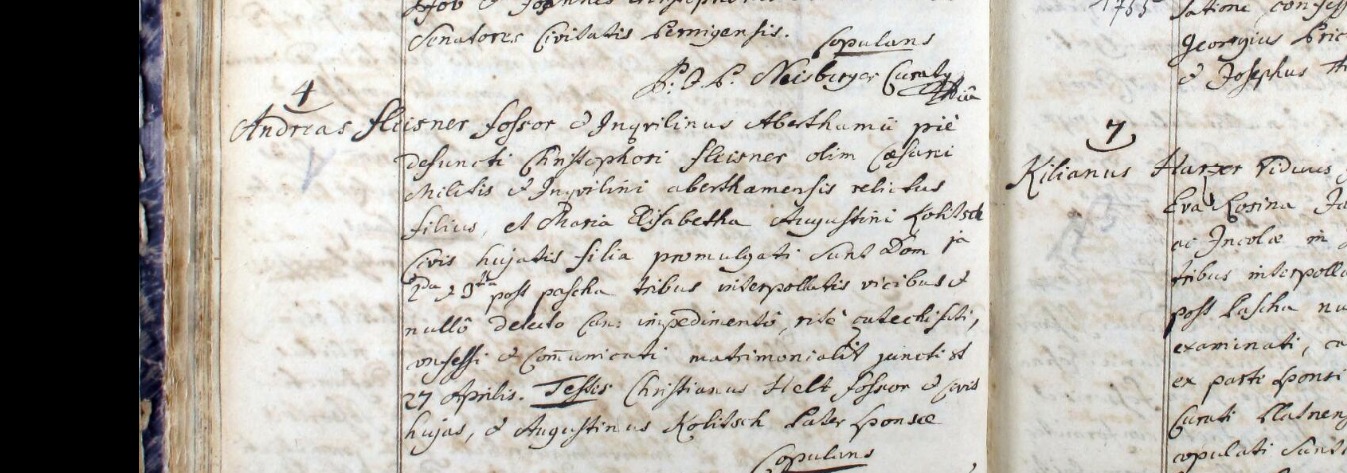 Senatores Civitatis Perningensis.
Copulans
P: J. P. Neisberger Curatus
4
Andreas Fleisner fossor & Inqvilinus Aberthamii piè
defuncti Christophori Fleisner olim Cæsarei
Militis & Inqvilini aberthamensis relictus
filius, et Maria Elisabetha Augustini Kolitsch
Civis hujatis filia promulgati sunt Dom 1a
2da & 3tia post pascha tribus interpollatis vicibus &
nullô detecto Can: impedimentô, ritè catechisati,
confessi & Com̄unicati matrimonialit juncti st
27 Aprilis. Testis Christianus Helt fossor & Civis
hujas, & Augustinus Kolitsch Pater Sponsæ
Copulans
1755
satione, confess
Georgius
& Josephus
7
Kilianus Harzer Viduus
Eva Rosina
ac Incolæ in
tribus interpolla
post Pascha nu
examinati, co
ex parti Sponsi
Curati Platnens
copulati sunt